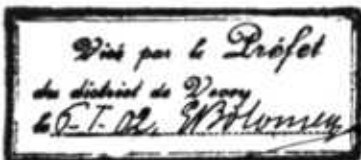 Visé par le Préfet
du district de Vevey
le 6-I-02. EBolomey